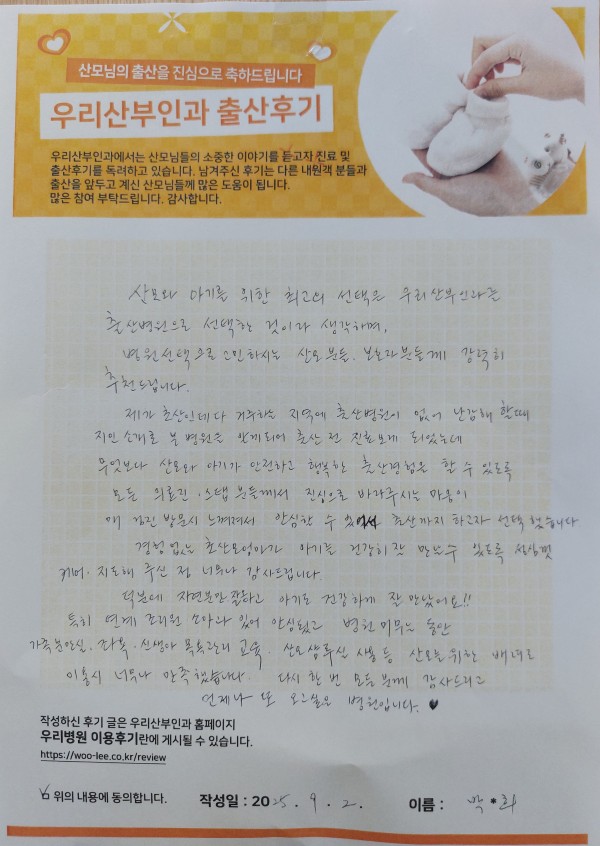 산모님의 출산을 진심으로 축하드립니다
우리산부인과 출산후기
우리산부인과에서는 산모님들의 소중한 이야기를 듣고자 진료 및
출산후기를 독려하고 있습니다. 남겨주신 후기는 다른 내원객 분들과
출산을 앞두고 계신 산모님들께 많은 도움이 됩니다.
많은 참여 부탁드립니다. 감사합니다.
산모와 아기를 위한 최고의 선택은 우리산부인과를
출산병원으로 선택하는 것이라 생각하며,
병원선택으로 고민하시는 산모분들, 보호자분들께 강력히
추천드립니다.
제가 초산인데다 거주하는 지역에 출산병원이 없어 난감해 할때
지인 소개로 본 병원은 알게되어 출산 전 진료보게 되었는데
무엇보다 산모와 아기가 안전하고 행복한 출산경험을 할 수 있도록
모든 의료진·스탭 분들께서 진심으로 바라주시는 마음이
매 검진 방문시 느껴져서 안심할 수 있어서 출산까지 하고자 선택했습니다
경험없는 초산모엄마가 아기를 건강히 잘 만날수 있도록 성심껏
케어·지도해 주신 점 너무나 감사드립니다.
덕분에 자연분만 잘하고 아기도 건강하게 잘 만났어요!!
특히 연계 조리원 소아과 있어 안심됐고 병원 머무는 동안
가족분만실, 좌욕, 신생아 목욕관리 교육, 산모샴푸실 사용 등 산모를 위한 배려로
이용시 너무나 만족했습니다. 다시 한 번 모든 분께 감사드리고
언제나 또 오고싶은 병원입니다. ♥
작성하신 후기 글은 우리산부인과 홈페이지
우리병원 이용후기란에 게시될 수 있습니다.
https://woo-lee.co.kr/review
위의 내용에 동의합니다. 작성일 : 2025. 9. 2. 이름 : 박*희